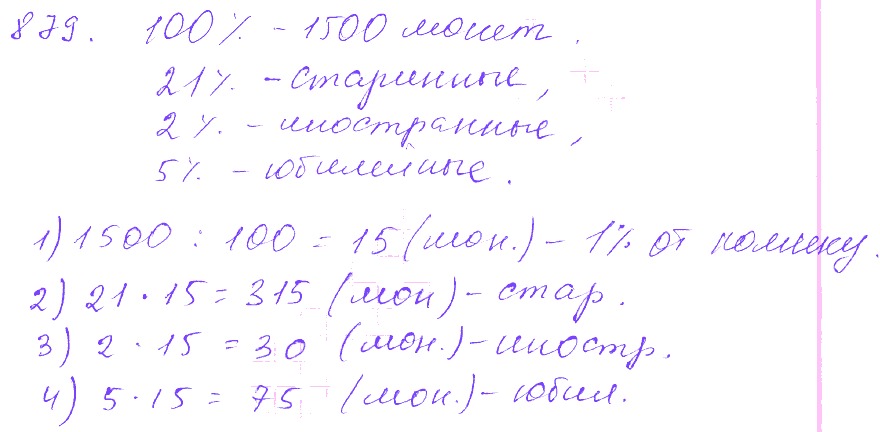 879. 100% - 1500 монет.
21% - старинные,
2% - иностранные,
5% - юбилейные.
1) 1500 : 100 = 15 (мон.) - 1% от
2) 21 · 15 = 315 (мон) - стар.
3) 2 · 15 = 30 (мон.) - иностр.
4) 5 · 15 = 75 (мон.) - юбил.